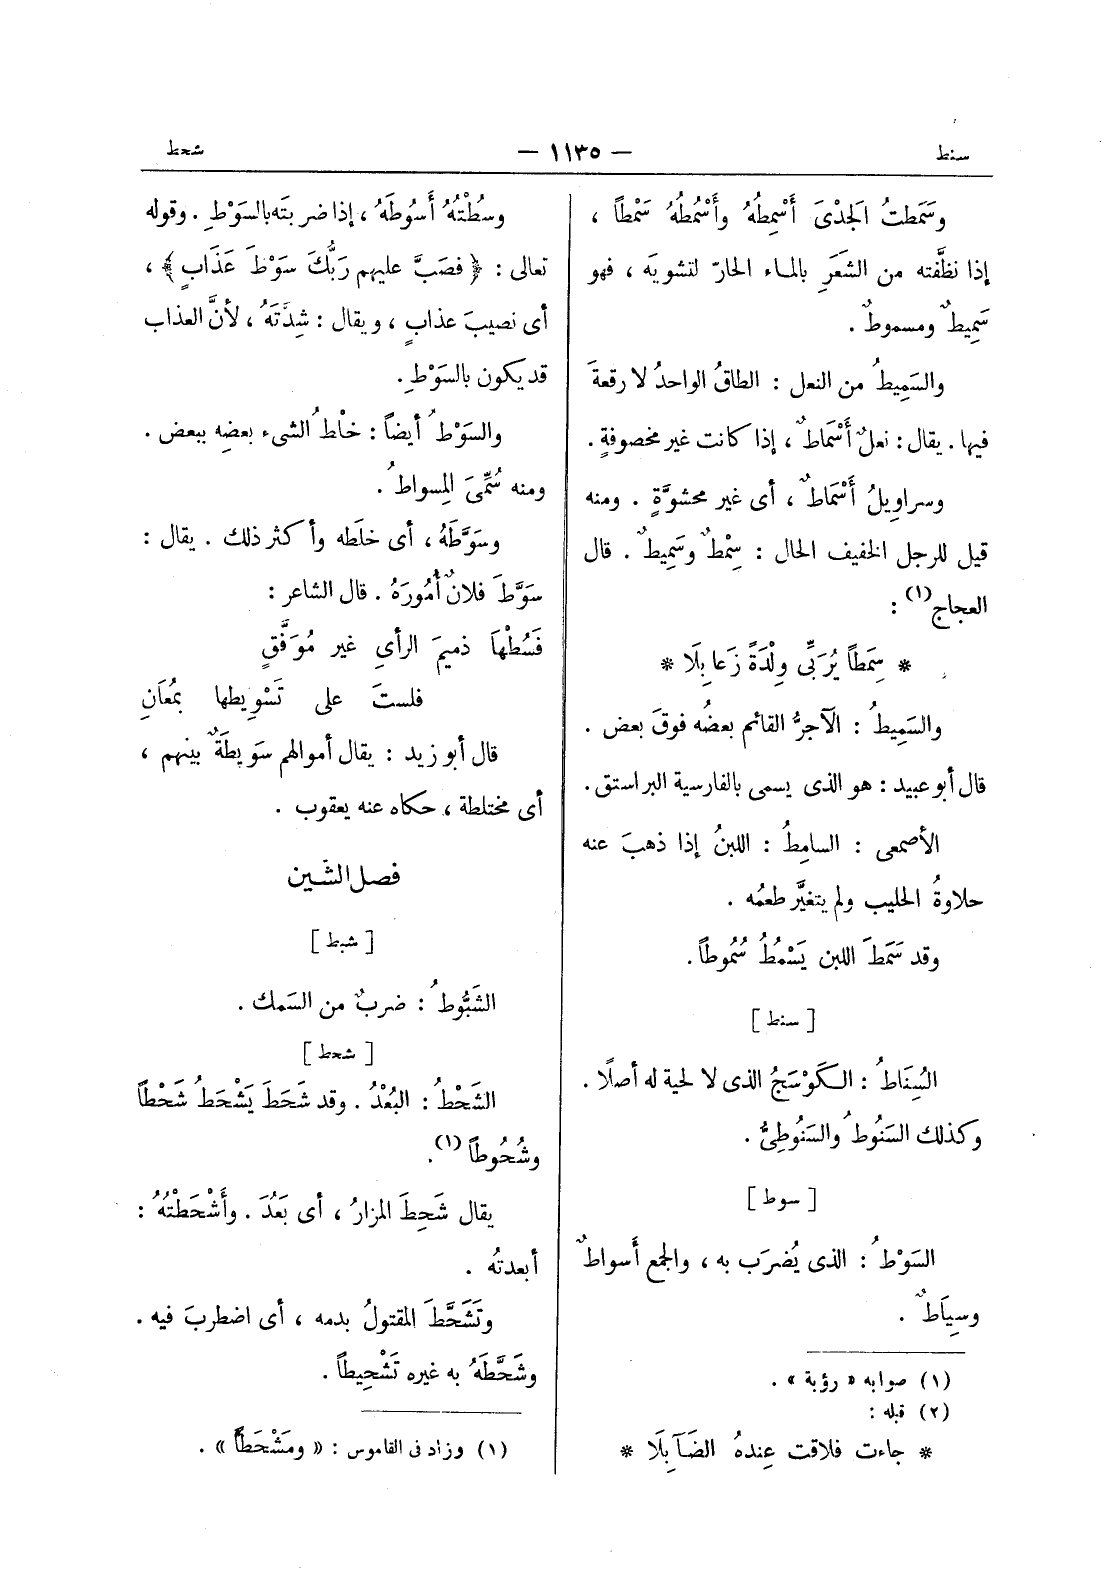 سنط
— ١١٣٥ —
شحط
وسَمَطتُ الجَدْىَ أَسْمِطُهُ وأَسْمُطُهُ سَمْطاً ،
إذا نظَّفته من الشعَرِ بالماء الحارّ لتشويَه ، فهو
سَمِيطٌ ومسموطٌ .
والسَمِيطُ من النعل : الطاقُ الواحدُ لا رقعةَ
فيها . يقال : نعلٌ أَسْمَاطٌ ، إذا كانت غير مخصوفةٍ .
وسراويلُ أَسْمَاطٌ ، أى غير محشوَّةٍ . ومنه
قيل للرجل الخفيف الحال : سِمْطٌ وسَمِيطٌ . قال
العجاج(١) :
* سِمَطاً يُرَبِّى وِلْدَةً زَعابِلَا *
والسَمِيطُ : الآجرُّ القائم بعضُه فوقَ بعض .
قال أبو عبيد : هو الذى يسمى بالفارسية البراستق .
الأصمعى : السامِطُ : اللبنُ إذا ذهبَ عنه
حلاوةُ الحليب ولم يتغيَّر طعمُه .
وقد سَمَطَ اللبن يَسْمُطُ سُمُوطاً .
[ سنط ]
السُِنَاطُ : الكَوْسَجُ الذى لا لحية له أصلًا .
وكذلك السَنُوطُ والسَنُوطِىُّ .
[ سوط ]
السَوْطُ : الذى يُضرَب به ، والجمع أَسواطٌ
وسِيَاطٌ .
(١) صوابه « رؤبة » .
(٢) قبله :
* جاءت فلاقت عِندهُ الضَآبِلَا *
وسُطْتُهُ أَسُوطَهُ ، إذا ضربتَه بالسَوْطِ . وقوله
تعالى : ﴿ فصَبَّ عليهم رَبُّكَ سَوْطَ عَذَابٍ ﴾ ،
أى نصيبَ عذابٍ ، ويقال : شِدَّتَهُ ، لأنَّ العذاب
قد يكون بالسَوْطِ .
والسَوْطُ أيضاً : خلْطُ الشىء بعضِه ببعض .
ومنه سُمِّىَ المِسواطُ .
وسَوَّطَهُ ، أى خلَطه وأكثر ذلك . يقال :
سَوَّطَ فلانٌ أُمُورَهُ . قال الشاعر :
فَسُطْهَا ذميمَ الرأىِ غير مُوَفَّقٍ
فلستَ على تَسْوِيطها بمُعَانِ
قال أبو زيد : يقال أموالهم سَوِيطَةٌ بينهم ،
أى مختلطة ، حكاه عنه يعقوب .
فصل الشين
[ شبط ]
الشَبُّوطُ : ضربٌ من السَمك .
[ شحط ]
الشَحْطُ : البُعْدُ . وقد شَحَطَ يَشْحَطُ شَحْطاً
وشُحُوطاً(١) .
يقال شَحِطَ المزارُ ، أى بَعُدَ . وأَشْحَطْتُهُ :
أبعدتُه .
وتَشَحَّطَ المقتولُ بدمه ، أى اضطربَ فيه .
وشَحَّطَهُ به غيره تَشْحِيطاً .
(١) وزاد فى القاموس : « ومَشْحَطاً » .